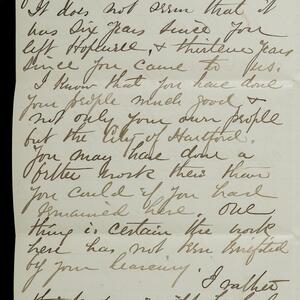 It does not seem that it
has six years since you
left Hopewell, & thirteen years
since you came to us.
I know that you have done
your people much good &
not only your own people
but the City of Hartford.
You may have done a
better work there than
you could if you had
remained here one
thing is certain the work
here has not been benefited
by your leaving.
I rather